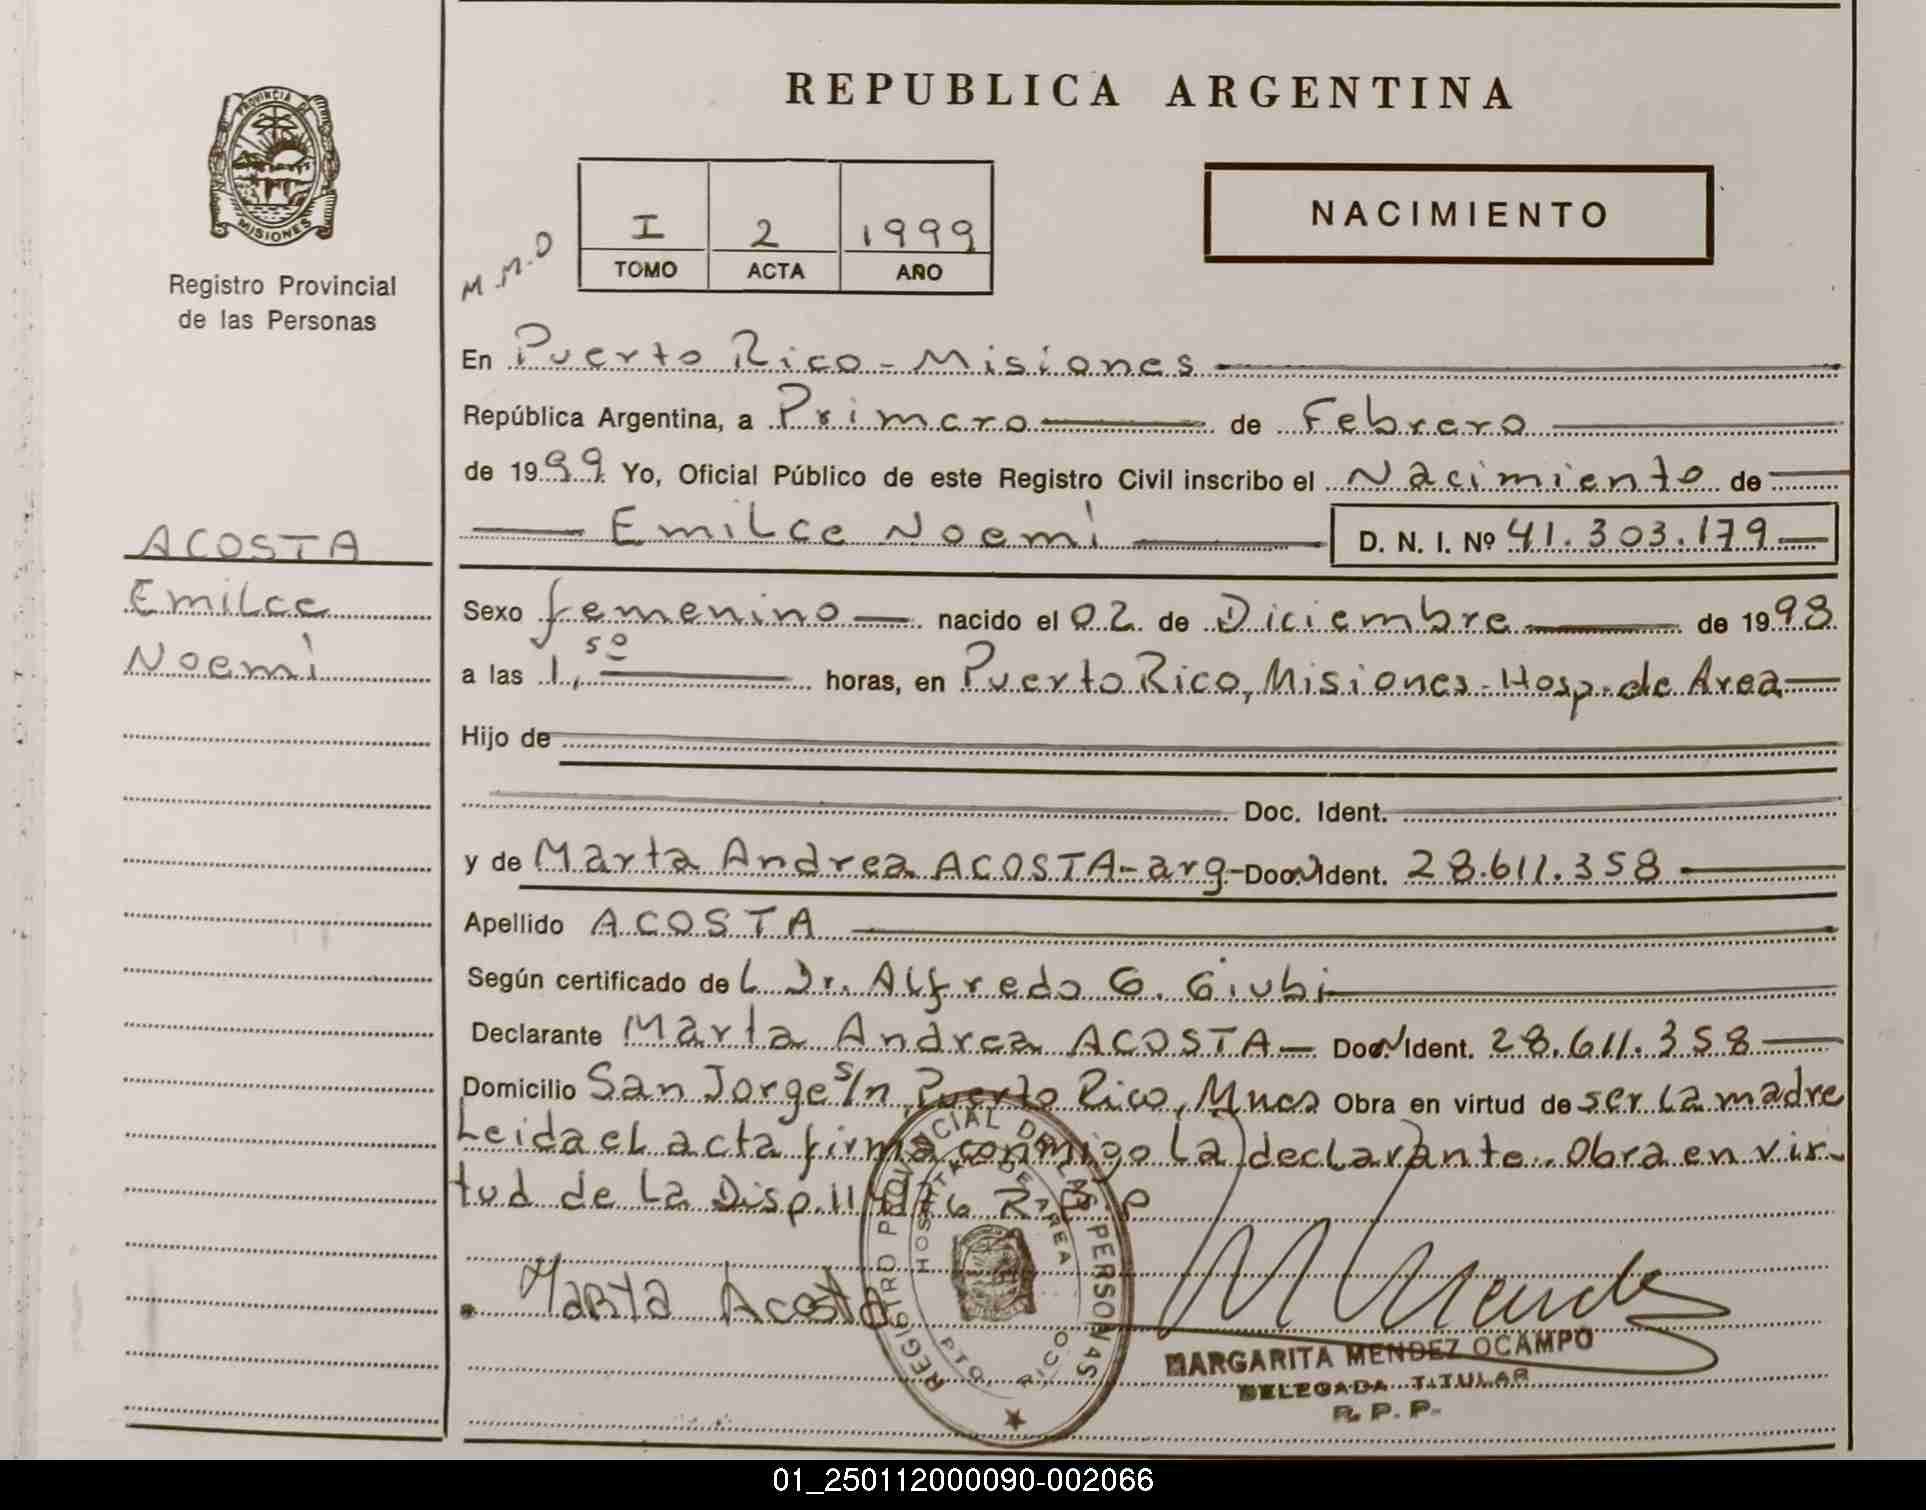 REPUBLICA ARGENTINA
PROVINCIA DE
MISIONES
Registro Provincial
de las Personas
I 2 1999
TOMO ACTA AÑO
NACIMIENTO
M.M.O
En Puerto Rico - Misiones
República Argentina, a Primero de Febrero
de 1999 Yo, Oficial Público de este Registro Civil inscribo el Nacimiento de
Emilce Noemí D. N. I. Nº 41.303.179
ACOSTA
Emilce
Noemí
Sexo femenino nacido el 02 de Diciembre de 1998
a las 1,50 horas, en Puerto Rico, Misiones - Hosp. de Area
Hijo de
Doc. Ident.
y de Marta Andrea ACOSTA - arg - Doc. N Ident. 28.611.358
Apellido ACOSTA
Según certificado de L Dr. Alfredo G. Giubi
Declarante Marta Andrea ACOSTA - Doc. N Ident. 28.611.358
Domicilio San Jorge s/n, Puerto Rico, Mnes Obra en virtud de ser la madre
Leida el acta firma conmigo la declarante. Obra en vir-
tud de la Disp. R.P.P
Marta Acosta
REGISTRO PROVINCIAL DE LAS PERSONAS
HOSPITAL DE AREA
PTO. RICO
M Mendez
MARGARITA MENDEZ OCAMPO
DELEGADA TITULAR
R. P. P.
01_250112000090-002066